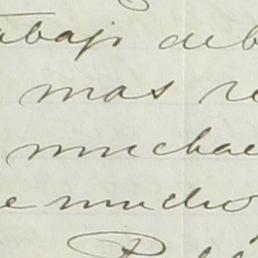 abajo deb
mas re
muchac
e mucho